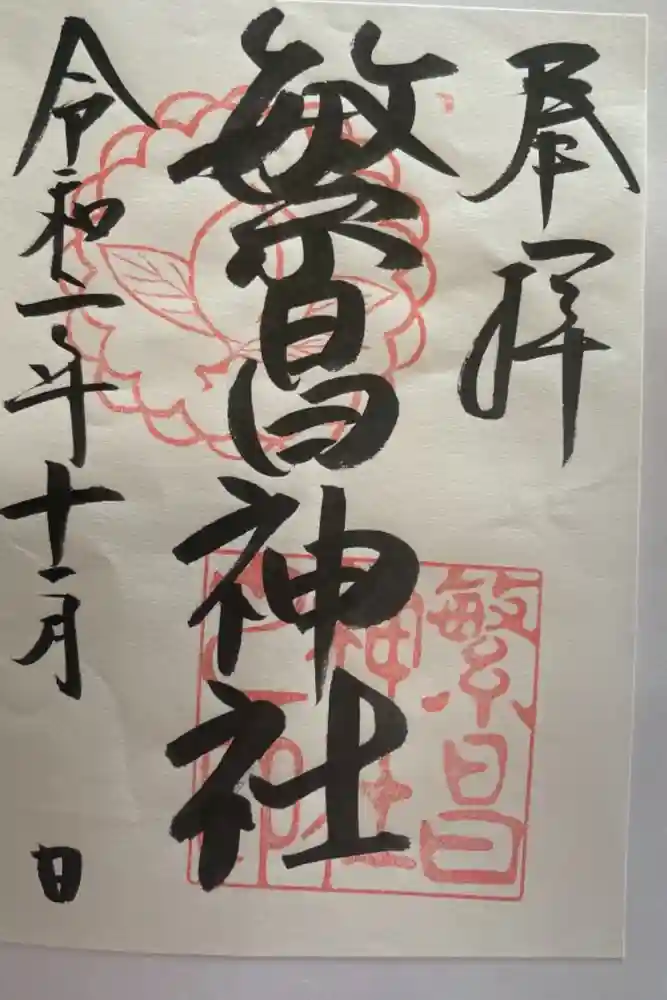 奉拝
繁昌神社
令和一年十一月　日
繁昌
神社
之印